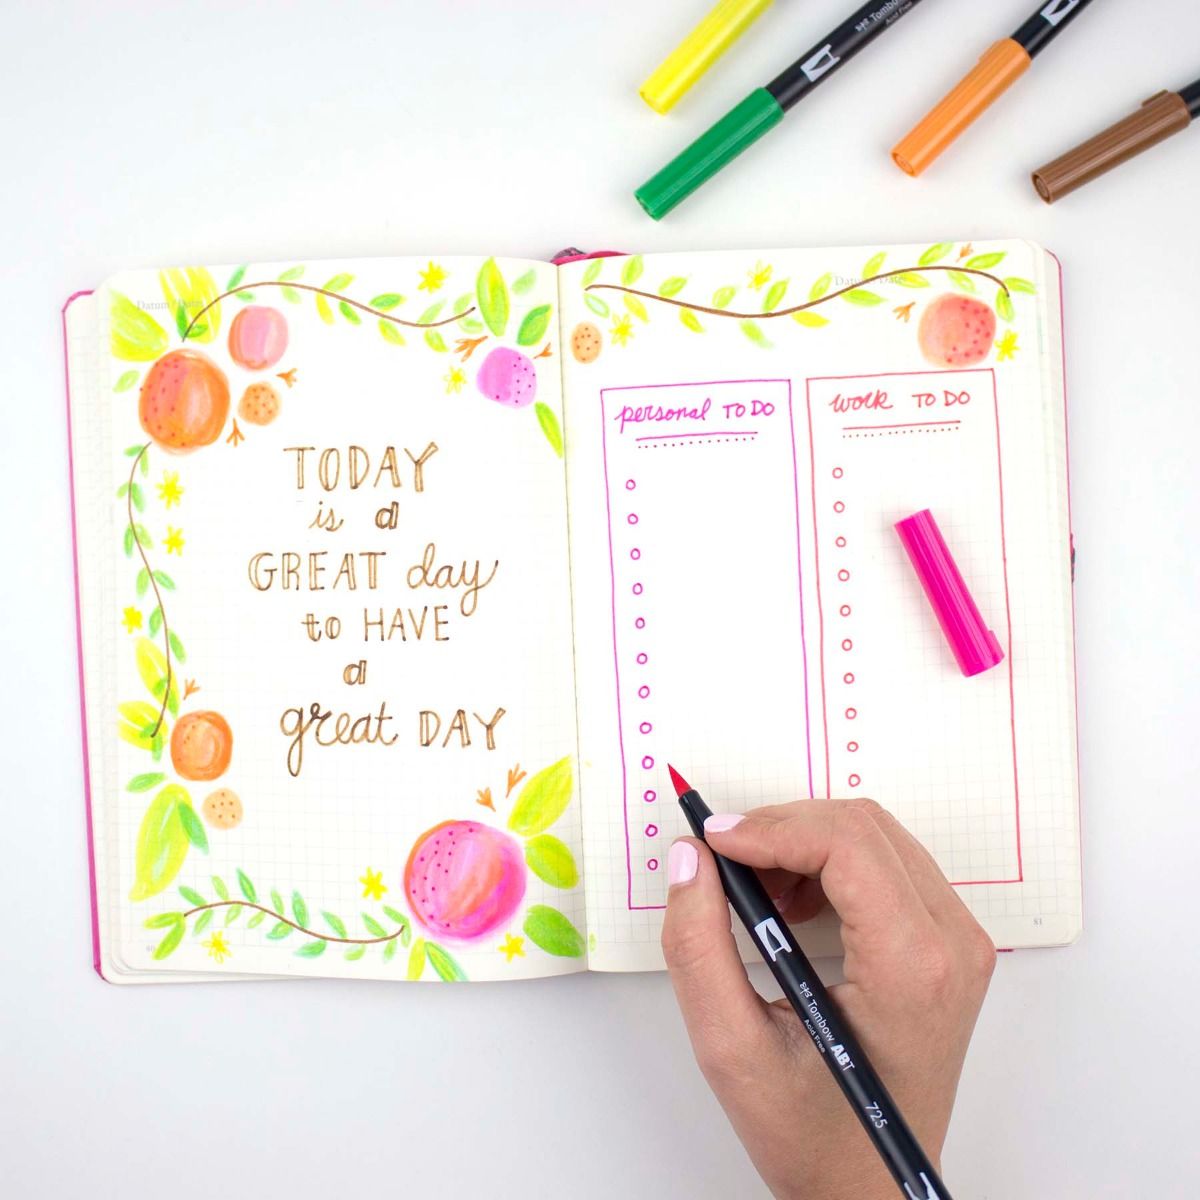 Datum / Date:
TODAY
is a
GREAT day
to HAVE
a
great DAY
80
Datum / Date:
personal TO DO
work TO DO
81
Tombow
Acid Free
Tombow ABT
Acid Free
725